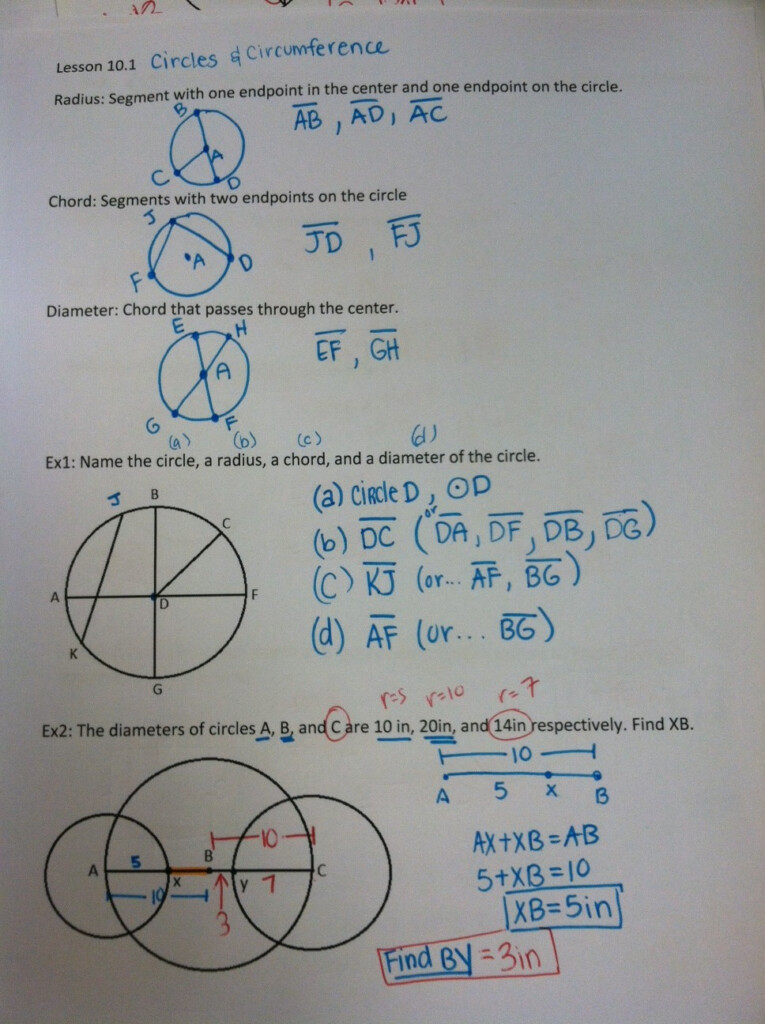 Lesson 10.1 Circles & Circumference
Radius: Segment with one endpoint in the center and one endpoint on the circle.
B
A̅B̅ , A̅D̅ , A̅C̅
A
C
D
Chord: Segments with two endpoints on the circle
J
J̅D̅ , F̅J̅
A
D
F
Diameter: Chord that passes through the center.
E H
E̅F̅ , G̅H̅
A
G
F
(a) (b) (c) (d)
Ex1: Name the circle, a radius, a chord, and a diameter of the circle.
J
B
C
A
D
F
K
G
(a) Circle D , ⊙D
(b) D̅C̅ (or D̅A̅, D̅F̅, D̅B̅, D̅G̅)
(c) K̅J̅ (or... A̅F̅, B̅G̅)
(d) A̅F̅ (or... B̅G̅)
r=5 r=10 r=7
Ex2: The diameters of circles A, B, and C are 10 in, 20in, and 14in respectively. Find XB.
10
A 5 X B
10
B
A 5
X
y 7
C
10
3
AX+XB=AB
5+XB=10
XB=5in
Find BY =3in